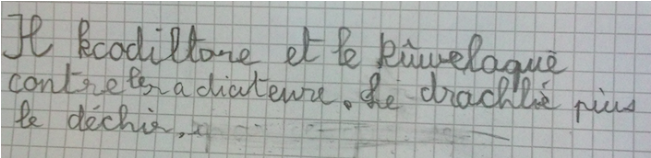 Il kcodiltone et le kûwelaquê
contre les radiateure. Le drachliè puis
le déchir,